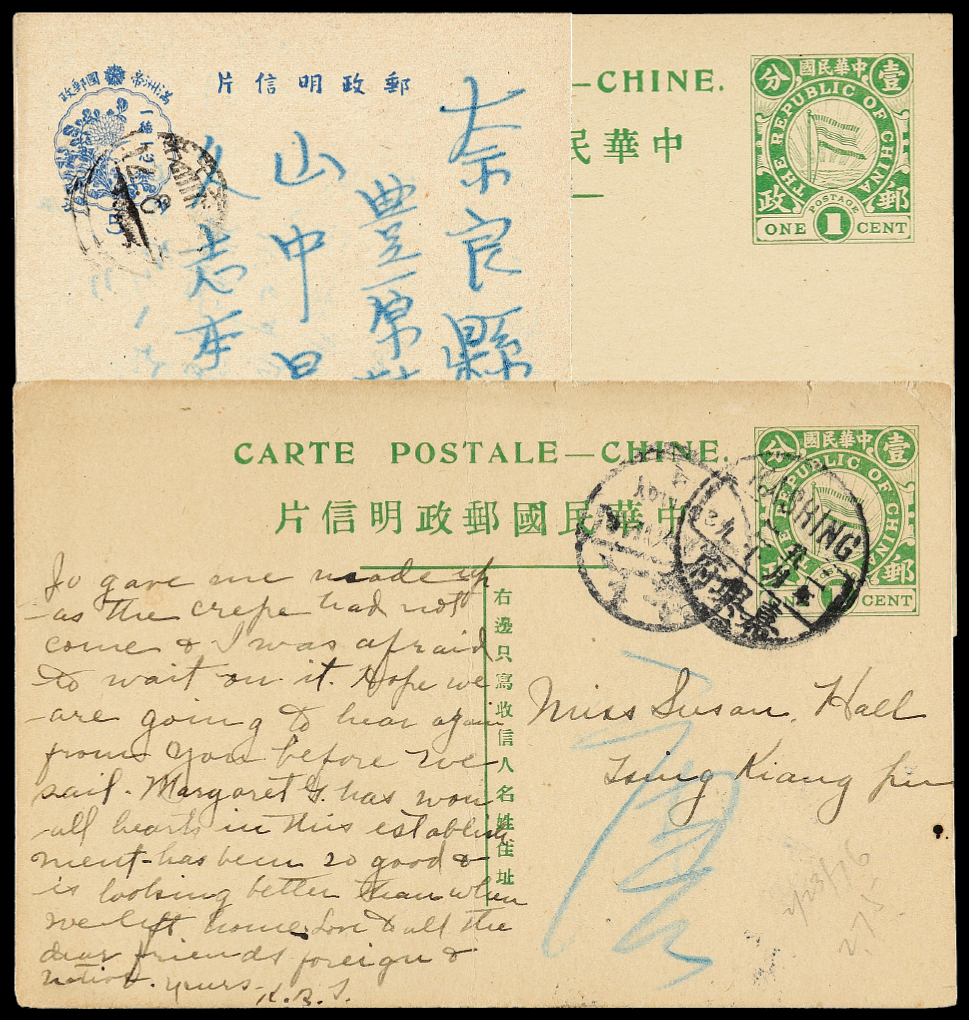 滿洲帝國郵政
郵政明信片
奈良縣
豊原村
山中
志本
—CHINE.
中華民
中華民國
壹分
THE REPUBLIC OF CHINA
郵政
POSTAGE
ONE 1 CENT
CARTE POSTALE—CHINE.
中華民國郵政明信片
中華民國
壹分
REPUBLIC OF CHINA
郵
1 CENT
KASHING
嘉興府
右邊只寫收信人名姓住址
Jo gave me made up
as the crepe had not
come & I was afraid
to wait on it. Hope we
are going to hear again
from you before we
sail. Margaret G. has won
all hearts in this establish
ment-has been so good &
is looking better than when
we left home. Love to all the
dear friends foreign &
native. Yours
Miss Susan Hall
Tsing Kiang pu
4/23/76
2.75